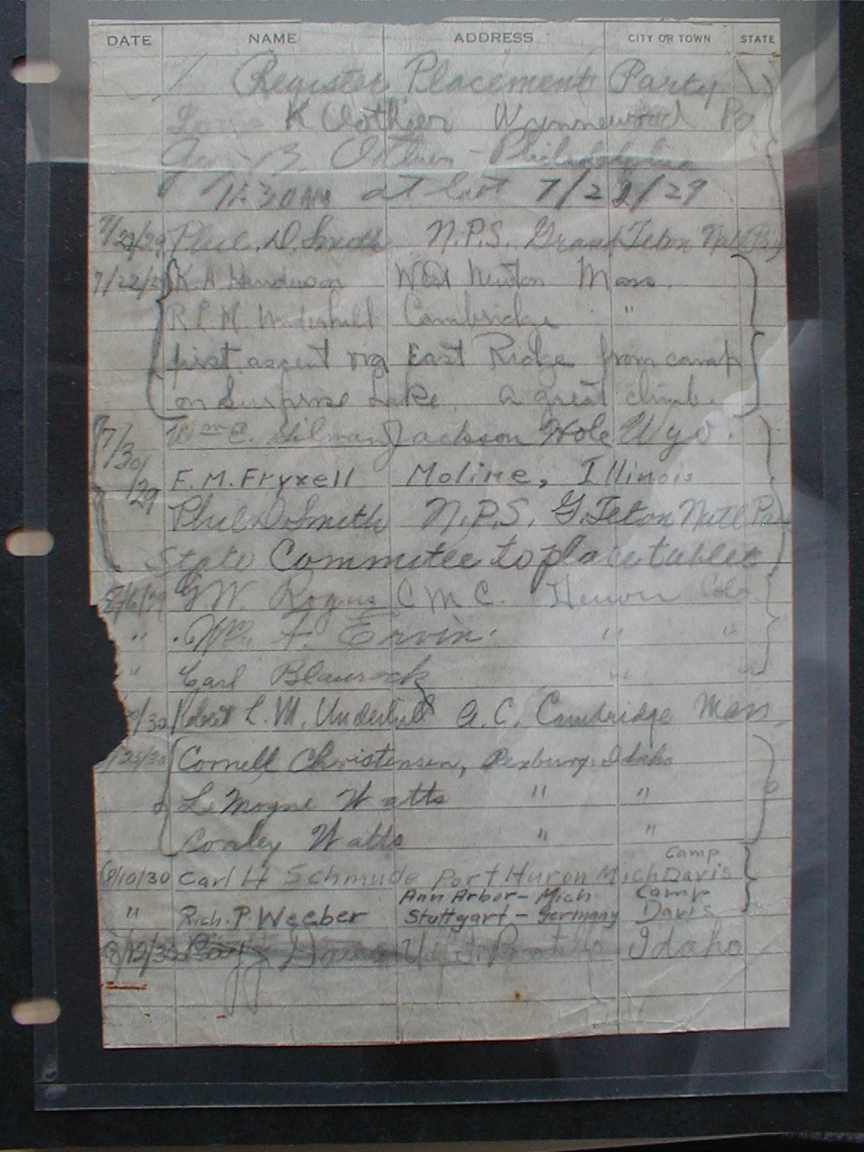 DATE NAME ADDRESS CITY OR TOWN STATE
Register Placement Party
K Clothier Wynnewood Pa
B. Philadelphia
11:30 AM at last 7/22/29
7/22/29 Phil. D. Smith N.P.S. Grand Teton Natl Pk
7/22/29 K. A. Henderson West Newton Mass.
R L M. Underhill Cambridge "
first ascent via East Ridge from camp
on Surprise Lake. A great climb.
7/30/29 Wm C. Gilman Jackson Hole Wyo.
F. M. Fryxell Moline, Illinois
Phil D. Smith N.P.S. G. Teton Natl Pa
State Committee to place tablet
8/6/29 G. W. Rogers C M C. Denver Colo
" Wm. F. Ervin. " "
" Carl Blaurock " "
/30 Robert L. M. Underhill A. C. Cambridge Mass.
/25/30 Cornell Christensen, Rexburg, Idaho
LeMoyne Watts " "
Conley Watts " "
8/10/30 Carl H Schmude Port Huron Mich Camp Davis
" Rich. P. Weeber Ann Arbor - Mich Stuttgart - Germany Camp Davis
8/12/30 Idaho